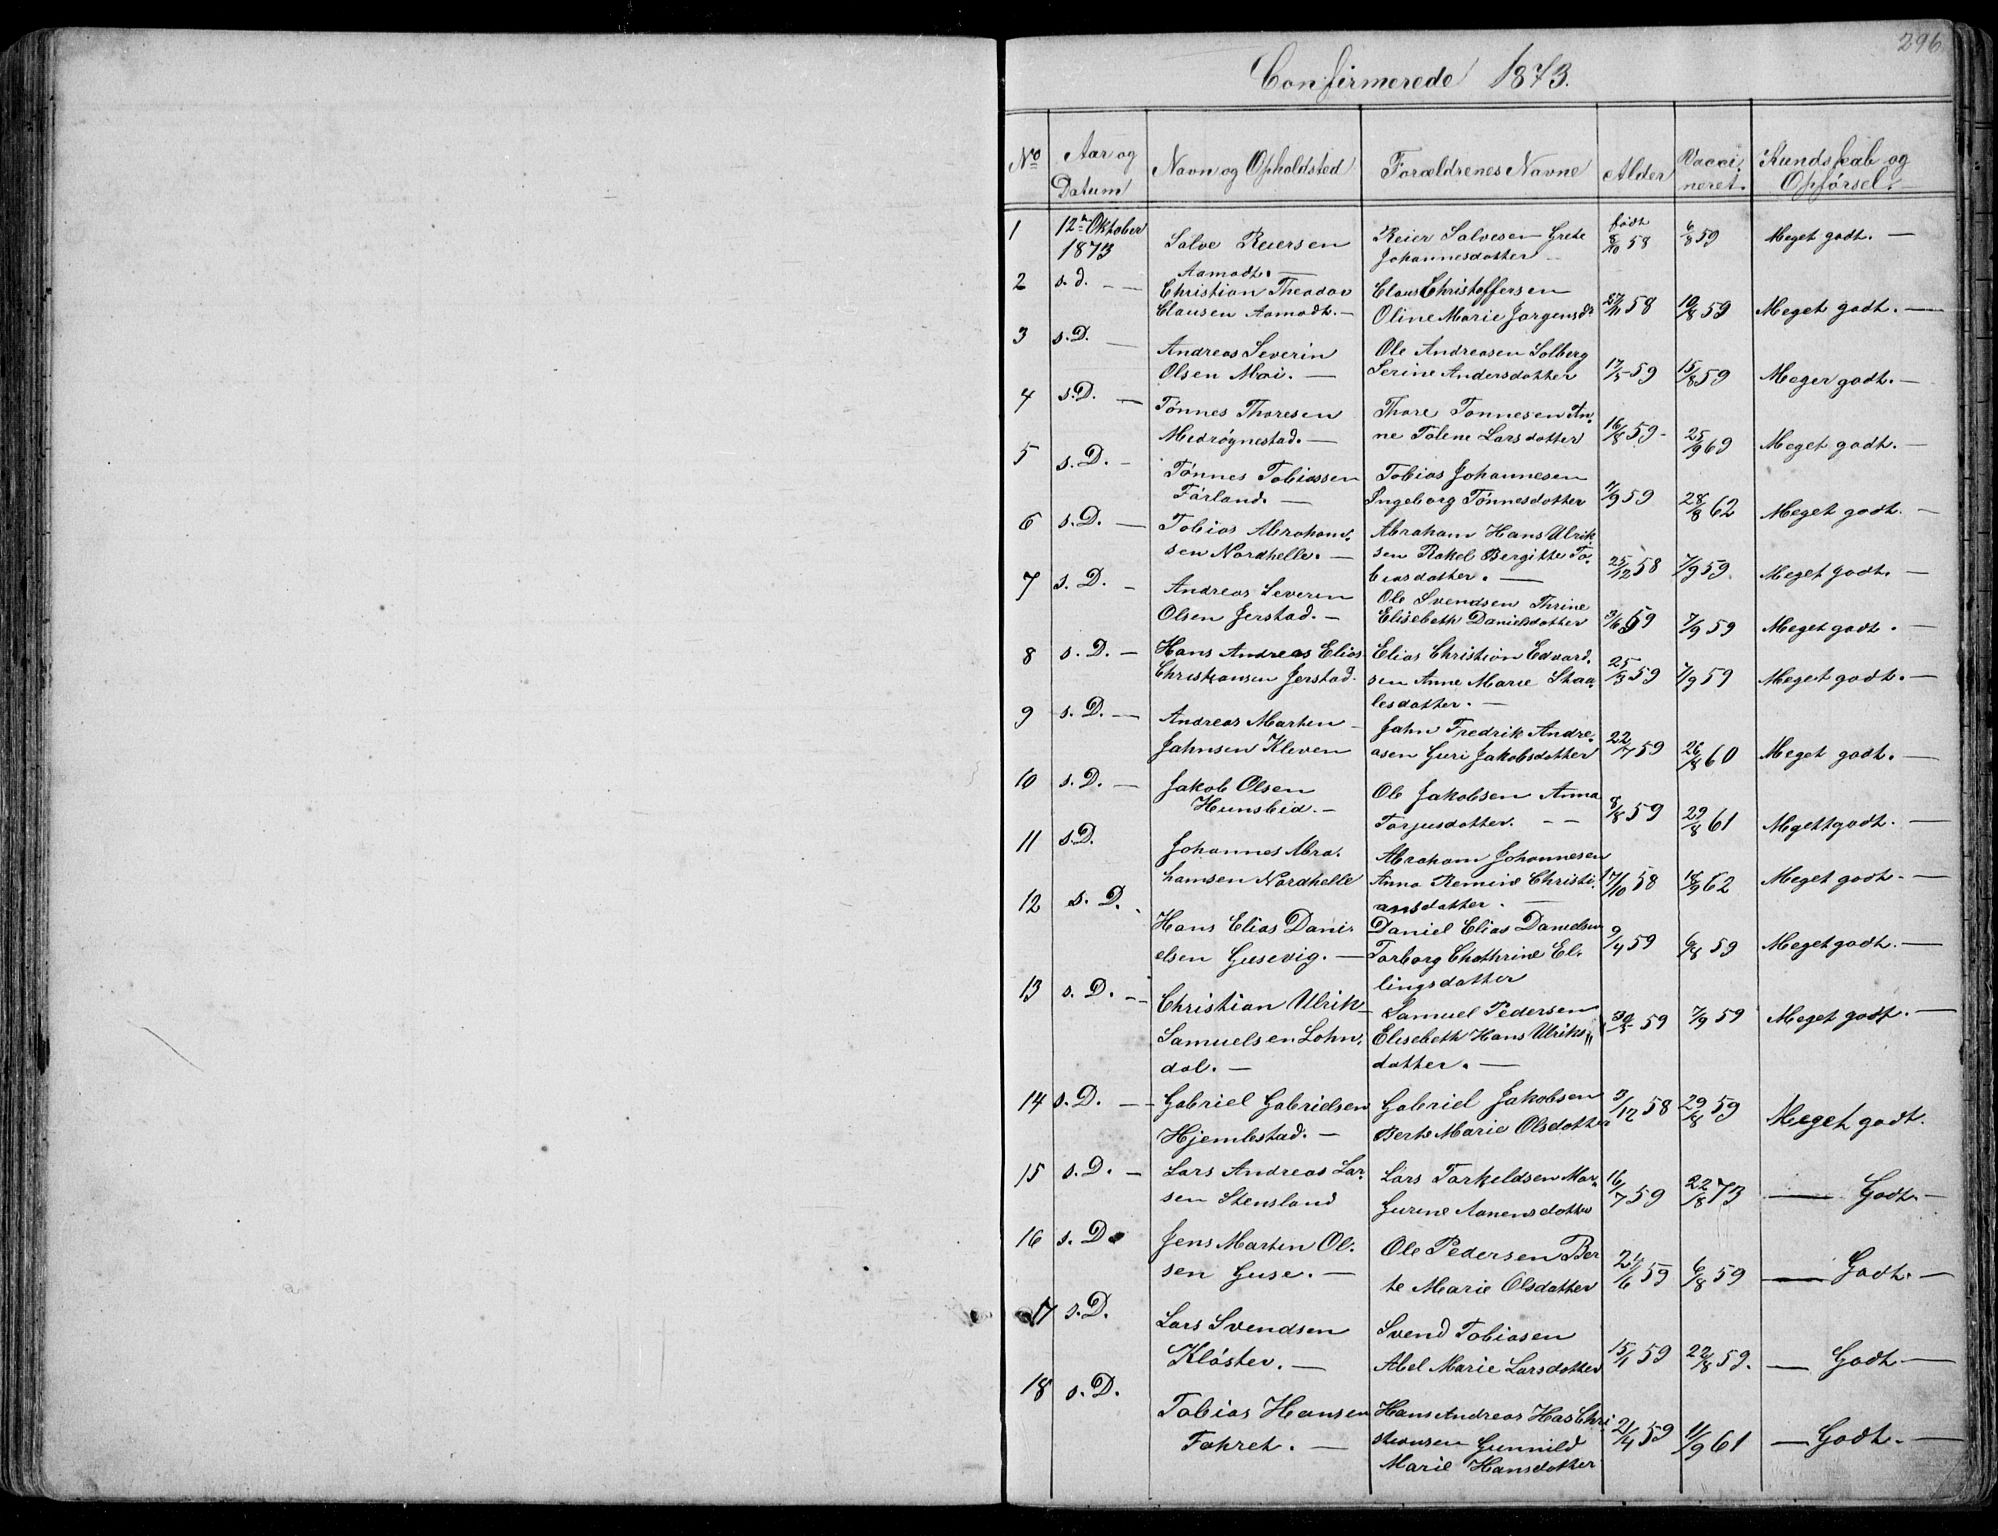 296
Confirmerede 1873.
No | Aar og Datum | Navn og Opholdsted | Forældrenes Navne | Alder | Vaccineret. | Kundskab og Opførsel.
1 | 12te Oktober 1873 | Salve Reiersen Aamodt. — | Reier Salvesen Grete Johannesdotter — | født 8/10 58 | 6/8 59 | Meget godt. —
2 | s. d. — — | Christian Theodor Clausen Aamodt. — | Claus Christoffersen Oline Marie Jørgensdr | 27/11 58 | 10/8 59 | Meget godt. —
3 | s. D. — | Andreas Severin Olsen Moi. — | Ole Andreasen Solberg Serine Andersdotter | 17/5 59 | 15/8 59 | Meger godt. —
4 | s. D. — | Tønnes Thoresen Midrøgnestad. — | Thore Tonnesen Anne Tolene Larsdotter | 16/8 59 - | 25/9 69 | Meget godt. —
5 | s. D. - | Tønnes Tobiassen Førland. — | Tobias Johannesen Ingeborg Tønnesdotter | 11/9 59 | 28/8 62 | Meget godt. —
6 | s. D. — | Tobias Abrahamsen Nordhelle. — | Abraham Hans Ulriksen Rakel Bergitte Tobiasdotter. — | 25/12 58 | 7/9 59 | Meget godt. —
7 | s. D. - | Andreas Severin Olsen Jerstad. — | Ole Svendsen Thrine Elisebeth Danielsdotter | 3/6 59 | 7/9 59 | Meget godt. —
8 | s. D. — | Hans Andreas Elias Christiansen Jerstad. | Elias Christian Edvardsen Anne Marie Staalesdotter. — | 25/3 59 | 7/9 59 | Meget godt. —
9 | s. D. — | Andreas Martin Jahnsen Kleven | Jahn Fredrik Andreasen Guri Jakobsdotter | 22/7 59 | 26/8 60 | Meget godt. —
10 | s. D. — | Jakob Olsen Hunsbid. — | Ole Jakobsen Anna Torjusdotter. — — | 8/8 59 | 29/8 61 | Megettgodt. —
11 | s. D. | Johannes Abrahamsen Nordhelle | Abraham Johannesen Anna Remine Christiansdotter. — | 17/10 58 | 18/9 62 | Meget godt. —
12 | s. D. | Hans Elias Danielsen Gusevig. — | Daniel Elias Danielsen Torborg Chathrine Ellingsdotter | 9/4 59 | 6/8 59 | Meget godt. —
13 | s. D. — | Christian Ulrik Samuelsen Lohndal. — | Samuel Pedersen Elisebeth Hans Ulriksdotter. — | 30/5 59 | 7/9 59 | Meget godt. —
14 | s. D. — | Gabriel Gabrielsen Hjemlestad. — | Gabriel Jakobsen Berte Marie Olsdotter | 3/12 58 | 29/8 59 | Meget godt.
15 | s. D. — | Lars Andreas Larsen Stensland | Lars Torkeldsen Mar- Gurine Aanensdotter | 16/7 59 | 22/8 73 | — Godt. —
16 | s. D. | Jens Martin Olsen Guse. — | Ole Pedersen Berte Marie Olsdotter | 21/6 59 | 6/8 59 | — Godt. —
17 | s. D. | Lars Svendsen Kløster. — | Svend Tobiasen Abel Marie Larsdotter | 15/1 59 | 22/8 59. | — Godt —
18 | s. D. | Tobias Hansen Fahret. — | Hans Andreas Has Christiansen Gunnild Marie Hansdotter | 21/4 59 | 11/9 61 | — Godt. —